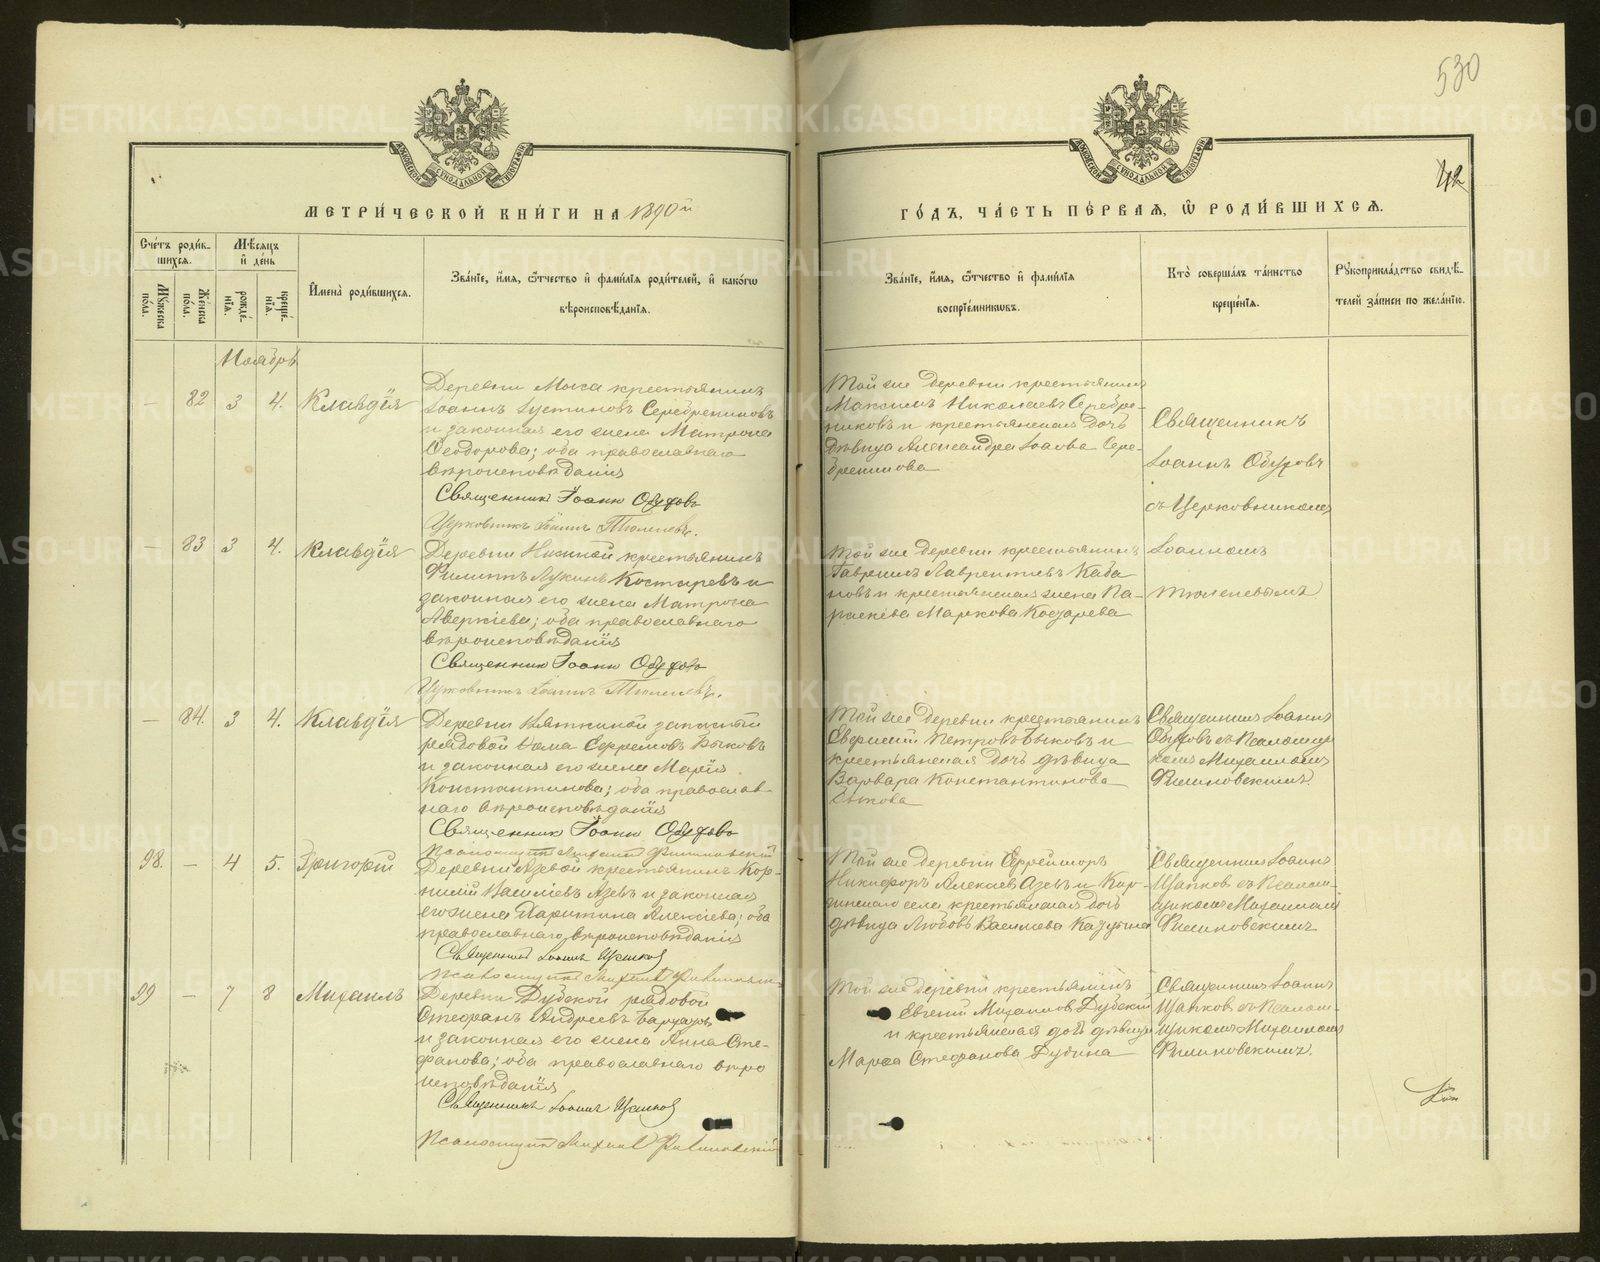 530
42
МЕТРИ́ЧЕСКОЙ КНИ́ГИ НА 1890й
ГО́ДЪ, ЧА́СТЬ ПЕ́РВАЯ, Ѡ РОДИ́ВШИХСЯ.
Сче́тъ роди́в-
шихся.
Мѣ́сяцъ
и҆ де́нь
Мꙋ́жеска
по́ла.
Же́нска
по́ла.
рожде́-
нїя.
креще́-
нїя.
И҆мена̀ роди́вшихся.
Зва́нїе, и҆́мя, ѻ҆́тчество и҆ фами́лїя роди́телей, и҆ како́гѡ
вѣроисповѣ́данїя.
Зва́нїе, и҆́мя, ѻ҆́тчество и҆ фами́лїя
воспрїе́мникѡвъ.
Кто̀ соверша́лъ та́инство
креще́нїя.
Рꙋкоприкла́дство свидѣ́-
телей за́писи по жела́нїю.
Ноябрь
— 82 3 4. Клавдія
Деревни Моса крестьянинъ
Іоаннъ Іустиновъ Серебренниковъ
и законная его жена Матрона
Ѳеодорова; оба православнаго
вѣроисповѣданія
Священник Іоанн Обуховъ
Церковникъ Іоаннъ Тюленевъ.
Той же деревни крестьянинъ
Максимъ Николаевъ Серебре-
никовъ и крестьянская дочь
дѣвица Александра Іоанова Сере-
бреникова
Священникъ
Іоаннъ Обуховъ
съ Церковникомъ
— 83 3 4. Клавдія
Деревни Нижней крестьянинъ
Филиппъ Лукинъ Костаревъ и
законная его жена Матрона
Аверкіева; оба православнаго
вѣроисповѣданія
Священник Іоанн Обухово
Церковникъ Іоаннъ Тюленевъ.
Той же деревни крестьянинъ
Гавріилъ Лаврентьевъ Каба
новъ и крестьянская жена Па-
раскева Маркова
Іоанномъ
Тюленевымъ
— 84. 3 4. Клавдія
Деревни запасный
рядовой Ѳома Ефремовъ Быковъ
и законная его жена Марія
Константинова; оба православ-
наго вѣроисповѣданія
Священник Іоанн Обухово
Псаломщикъ Михаилъ Филиповскій
Той же деревни крестьянинъ
Петровъ Быковъ и
крестьянская дочь дѣвица
Варвара Константинова
Быкова
Священникъ Іоаннъ
Обуховъ съ Псаломщи
комъ Михаиломъ
Филиповскимъ.
98. — 4 5. Григорій
Деревни Азевой крестьянинъ Кор-
нилій Василіевъ Азевъ и законная
его жена Алексіева; оба
православнаго вѣроисповѣданія
Священник Іоаннъ Цапков
Псаломщикъ Михаил Филиповскій
Той же деревни Ефрейторъ
Никифоръ Алексіев Азевъ и Кур-
села крестьянская дочь
дѣвица Любовь Василіева
Священникъ Іоаннъ
Цапков съ Псалом-
щикомъ Михаиломъ
Филиповскимъ
99 — 7 8 Михаилъ
Деревни Дубской рядовой
Стефанъ Андреевъ
и законная его жена Анна Сте-
фанова; оба православнаго вѣро
исповѣданія
Священникъ Іоаннъ Цапков
Псаломщикъ Михаил Филиповскій
Той же деревни крестьянинъ
Евгеній Михаилов Дубской
и крестьянская дочь дѣвица
Марѳа Стефанова Дубина
Священникъ Іоаннъ
Цапков съ Псалом-
щикомъ Михаиломъ
Филиповскимъ.
METRIKI.GASO-URAL.RU